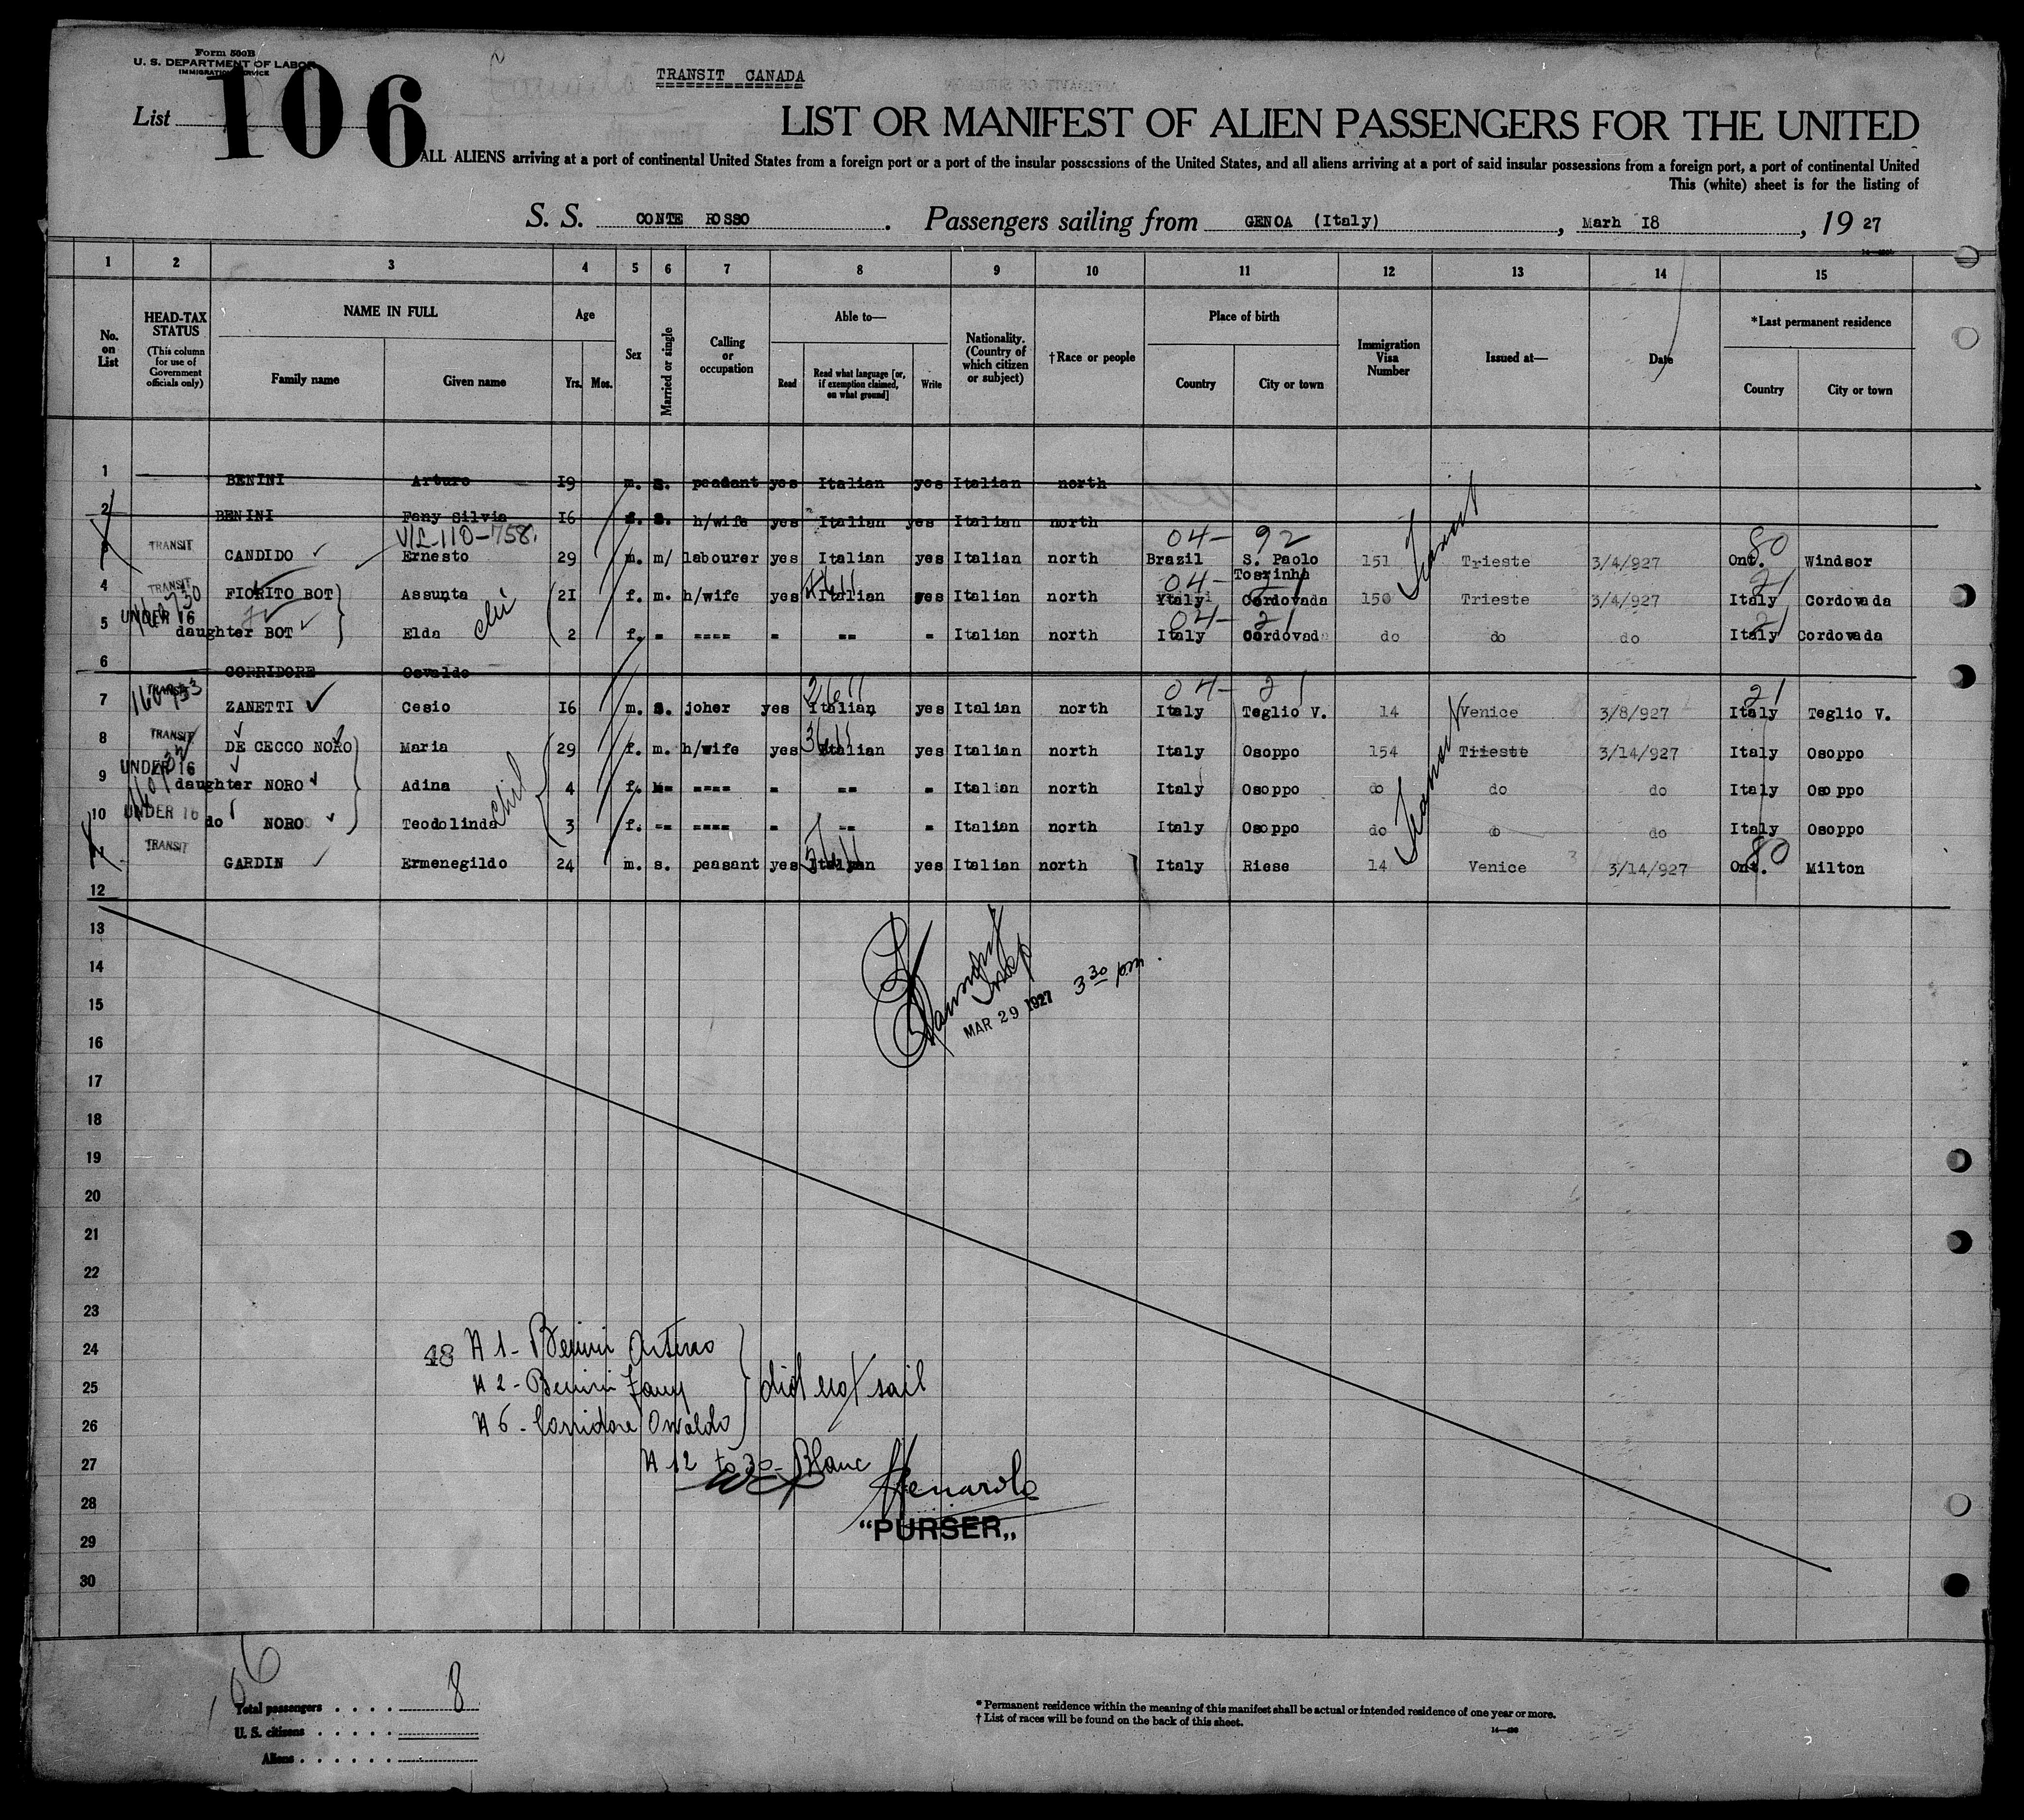 Form 500B
U. S. DEPARTMENT OF LABOR
IMMIGRATION SERVICE
TRANSIT CANADA
List 106
LIST OR MANIFEST OF ALIEN PASSENGERS FOR THE UNITED
ALL ALIENS arriving at a port of continental United States from a foreign port or a port of the insular possessions of the United States, and all aliens arriving at a port of said insular possessions from a foreign port, a port of continental United
This (white) sheet is for the listing of
S. S. CONTE ROSSO. Passengers sailing from GENOA (Italy), Marh 18, 1927
1 2 3 4 5 6 7 8 9 10 11 12 13 14 15
No. on List
HEAD-TAX STATUS (This column for use of Government officials only)
NAME IN FULL
Family name Given name
Age
Yrs. Mos.
Sex
Married or single
Calling or occupation
Able to—
Read Read what language [or, if exemption claimed, on what ground] Write
Nationality. (Country of which citizen or subject)
†Race or people
Place of birth
Country City or town
Immigration Visa Number
Issued at—
Date
*Last permanent residence
Country City or town
1 BENINI Arturo 19 m. s. peasant yes Italian yes Italian north
2 BENINI Fany Silvia 16 f. s. h/wife yes Italian yes Italian north
V/L-110-758. 04- 92 80
3 TRANSIT CANDIDO Ernesto 29 m. m/ labourer yes Italian yes Italian north Brazil S. Paolo 151 Trieste 3/4/927 Ont. Windsor
04- 21
4 TRANSIT FIORITO BOT Assunta 21 f. m. h/wife yes Italian yes Italian north Italy Cordovada 150 Trieste 3/4/927 Italy Cordovada
04- 21
5 UNDER 16 daughter BOT Elda 2 f. - ---- - -- - Italian north Italy Cordovad do do do Italy Cordovada
6 CORRIDORE Osvaldo
04- 21 21
7 TRANSIT ZANETTI Cesio 16 m. s. joher yes Italian yes Italian north Italy Teglio V. 14 Venice 3/8/927 Italy Teglio V.
8 TRANSIT DE CECCO NORO Maria 29 f. m. h/wife yes Italian yes Italian north Italy Osoppo 154 Trieste 3/14/927 Italy Osoppo
9 UNDER 16 daughter NORO Adina 4 f. -- ---- - -- - Italian north Italy Osoppo do do do Italy Osoppo
10 UNDER 16 do NORO Teodolinda 3 f. -- ---- - -- - Italian north Italy Osoppo do do do Italy Osoppo
80
11 TRANSIT GARDIN Ermenegildo 24 m. s. peasant yes Italian yes Italian north Italy Riese 14 Venice 3/14/927 Ont. Milton
12
13
14
15 MAR 29 1927 3 30 pm.
16
17
18
19
20
21
22
23
24 48 N 1 - Benini Arturo
25 N 2 - Benini Fany did not sail
26 N 6 - Corridore Osvaldo
27 N 12 to 30 - Blanc
28
29 "PURSER„
30
Total passengers . . . . 8
U. S. citizens . . . . .
Aliens . . . . . .
* Permanent residence within the meaning of this manifest shall be actual or intended residence of one year or more.
† List of races will be found on the back of this sheet.